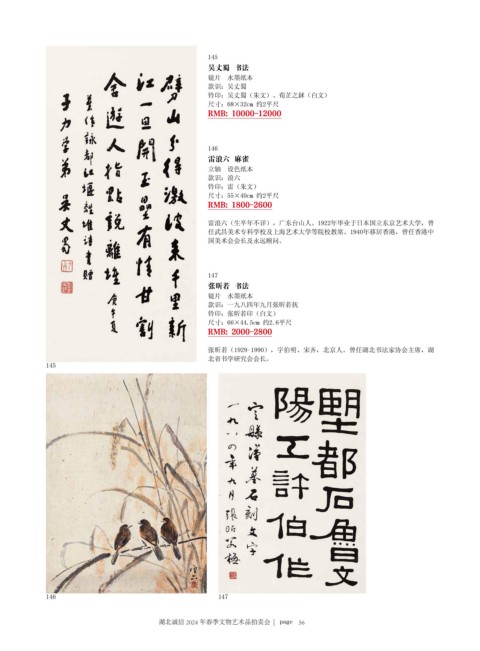 145
吴丈蜀 书法
镜片 水墨纸本
款识：吴丈蜀
钤印：吴丈蜀（朱文）、荀芷之鉥（白文）
尺寸：68×32cm 约2平尺
RMB: 10000-12000
146
雷浪六 麻雀
立轴 设色纸本
款识：浪六
钤印：雷（朱文）
尺寸：55×40cm 约2平尺
RMB: 1800-2600
雷浪六（生卒年不详），广东台山人。1922年毕业于日本国立东京艺术大学。曾
任武昌美术专科学校及上海艺术大学等院校教席。1940年移居香港，曾任香港中
国美术会会长及永远顾问。
147
张昕若 书法
镜片 水墨纸本
款识：一九八四年九月张昕若抚
钤印：张昕若印（白文）
尺寸：60×44.5cm 约2.6平尺
RMB: 2000-2800
张昕若（1929-1990），字伯明、宋斉，北京人。曾任湖北书法家协会主席，湖
北省书学研究会会长。
劈山分得激波来千里新
江一旦開玉壘有情甘割
舍遊人指點說離堆 庚午夏
作詠都江堰離堆詩書贈
子力学弟 吴丈蜀
145
浪六
146
朢都石魯文
陽工許伯作
定縣漢墓石刻文字
一九八四年九月張昕若
147
湖北诚信 2024 年春季文物艺术品拍卖会 | page 56